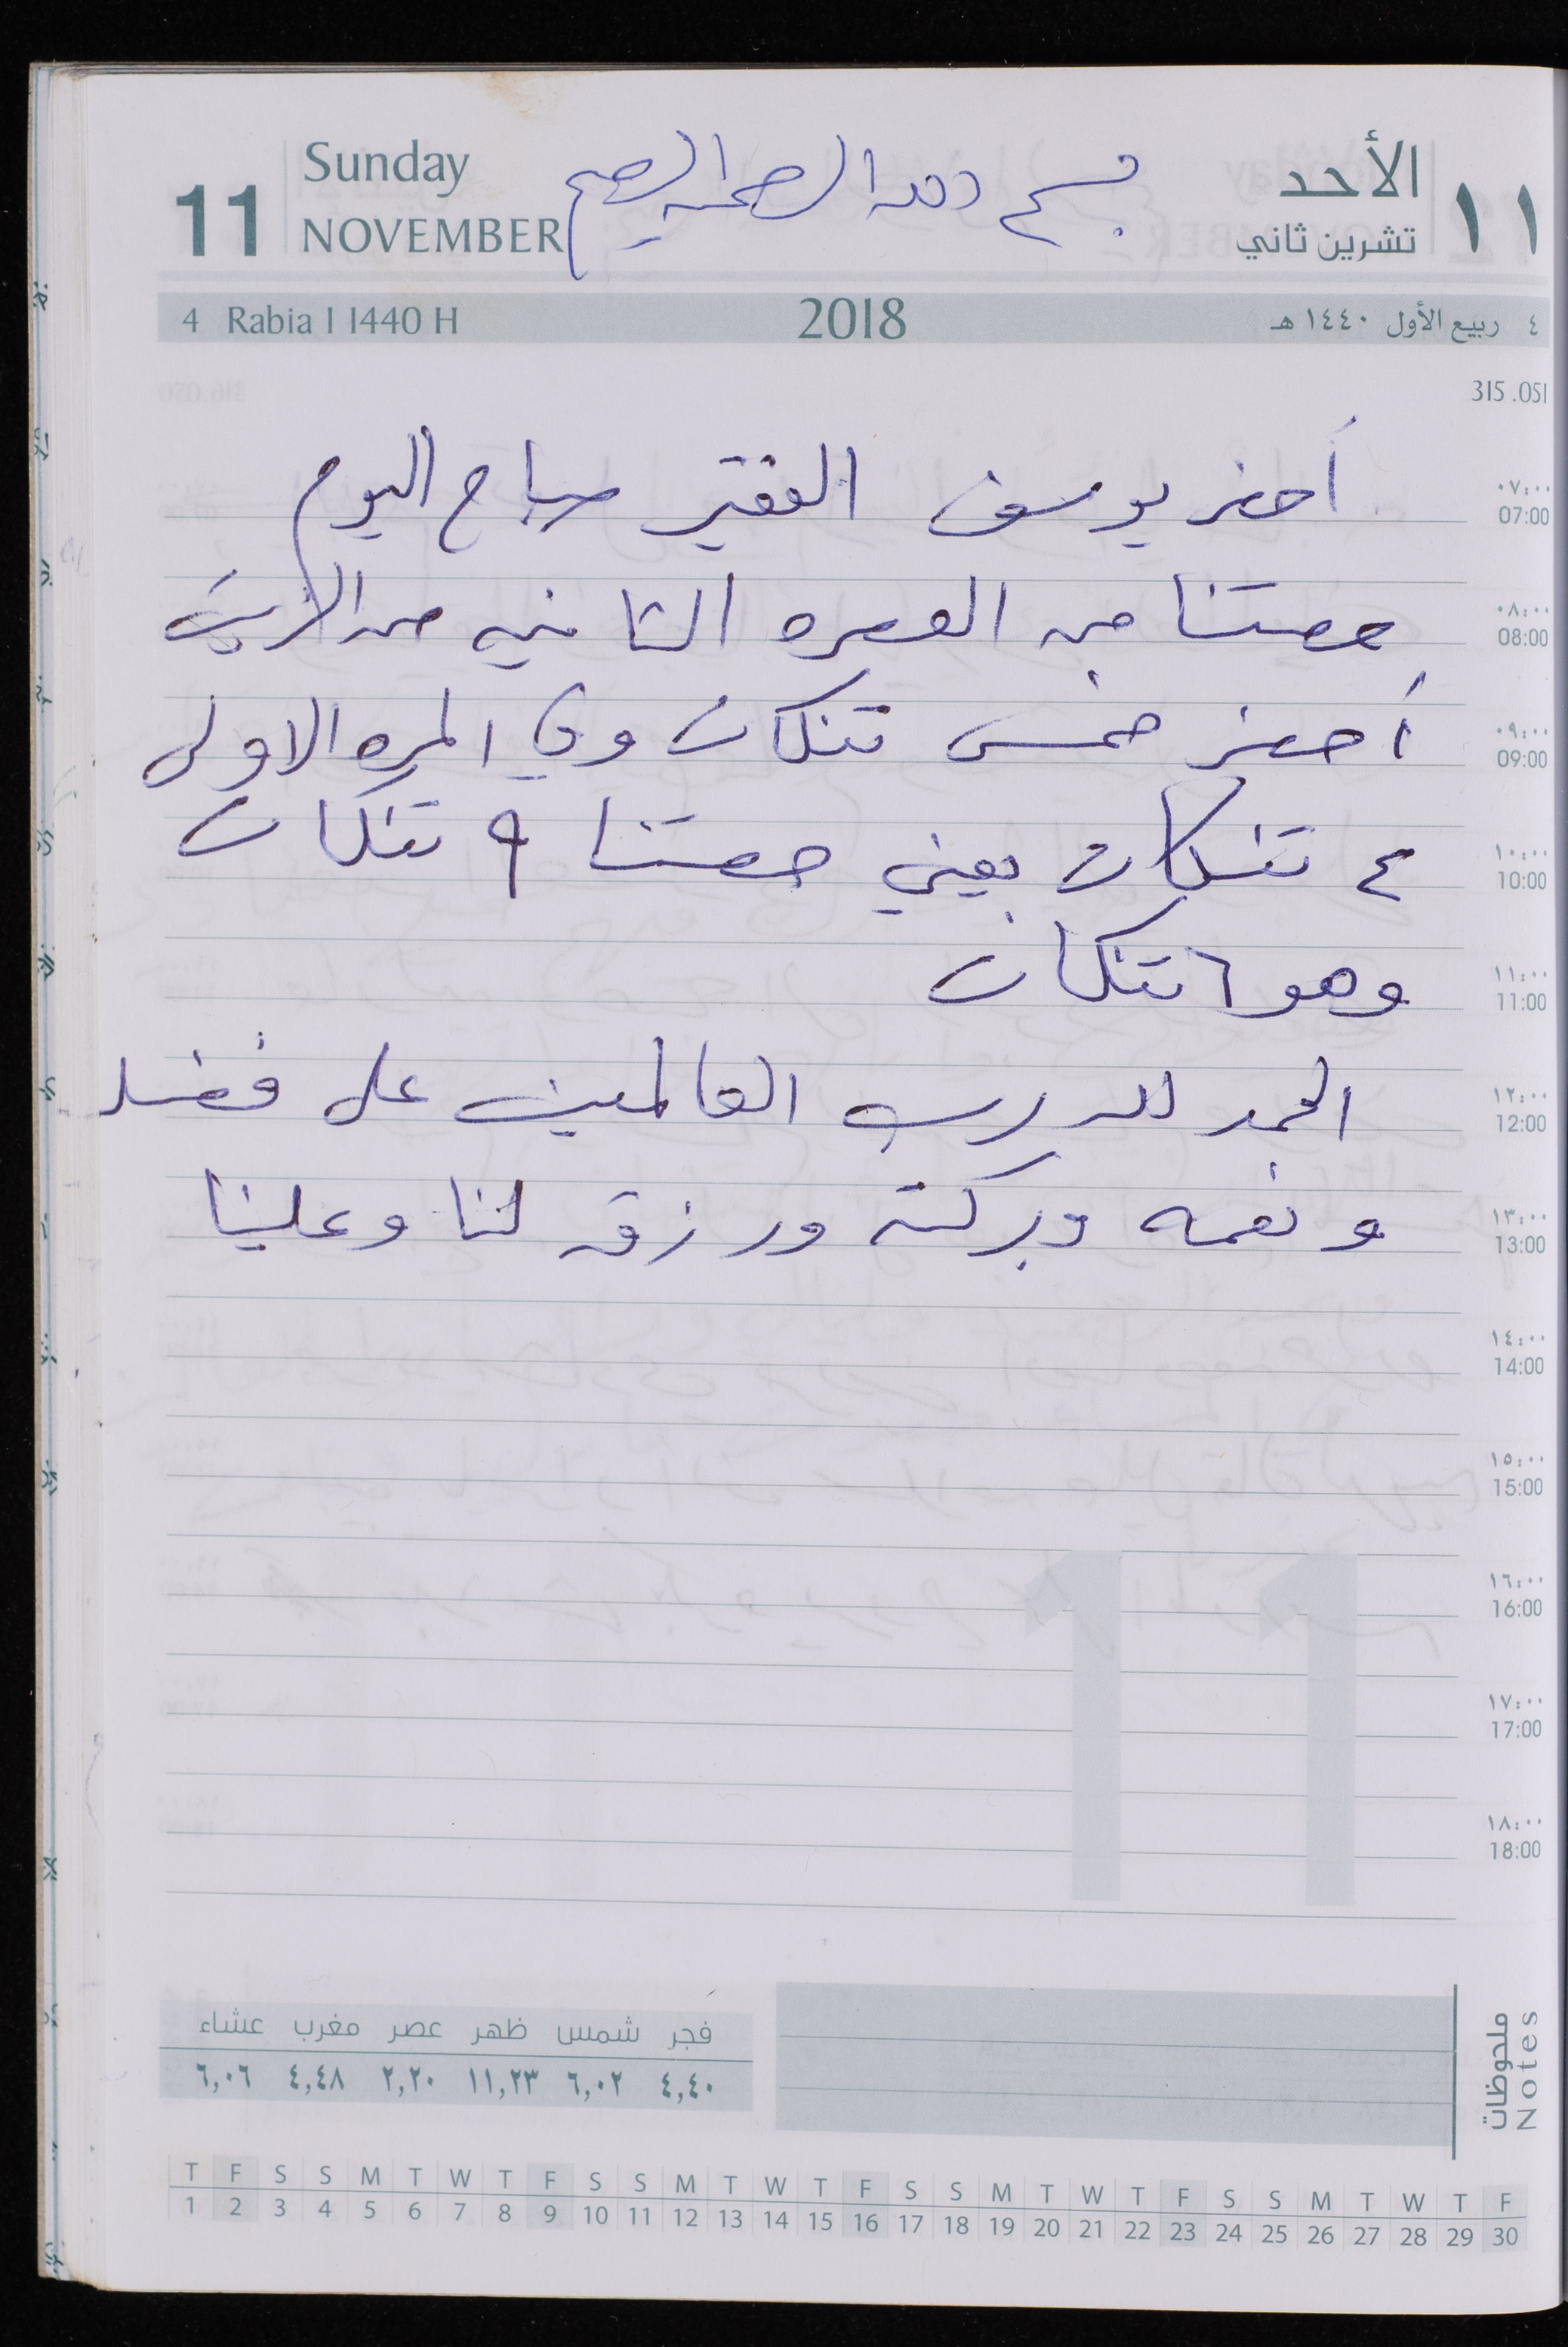 11
Sunday
NOVEMBER
بسم الله الرحمن الرحيم
الأحد
تشرين ثاني
١١
4 Rabia I 1440 H
2018
٤ ربيع الأول ١٤٤٠ هـ
315 .051
أحضر يوسف الفقير صباح اليوم
حصتنا من العصره الثانيه من الزيت
أحضر خمس تنكات وفي المره الاولى
٤ تنكات يعني حصتنا ٩ تنكات
وهو ٦ تنكات
الحمد لله رب العالمين على فضله
ونعمه وبركته ورزقه لنا وعلينا
٠٧:٠٠
07:00
٠٨:٠٠
08:00
٠٩:٠٠
09:00
١٠:٠٠
10:00
١١:٠٠
11:00
١٢:٠٠
12:00
١٣:٠٠
13:00
١٤:٠٠
14:00
١٥:٠٠
15:00
١٦:٠٠
16:00
١٧:٠٠
17:00
١٨:٠٠
18:00
11
ملحوظات
Notes
فجر شمس ظهر عصر مغرب عشاء
٤,٤٠ ٦,٠٢ ١١,٢٣ ٢,٢٠ ٤,٤٨ ٦,٠٦
T F S S M T W T F S S M T W T F S S M T W T F S S M T W T F
1 2 3 4 5 6 7 8 9 10 11 12 13 14 15 16 17 18 19 20 21 22 23 24 25 26 27 28 29 30